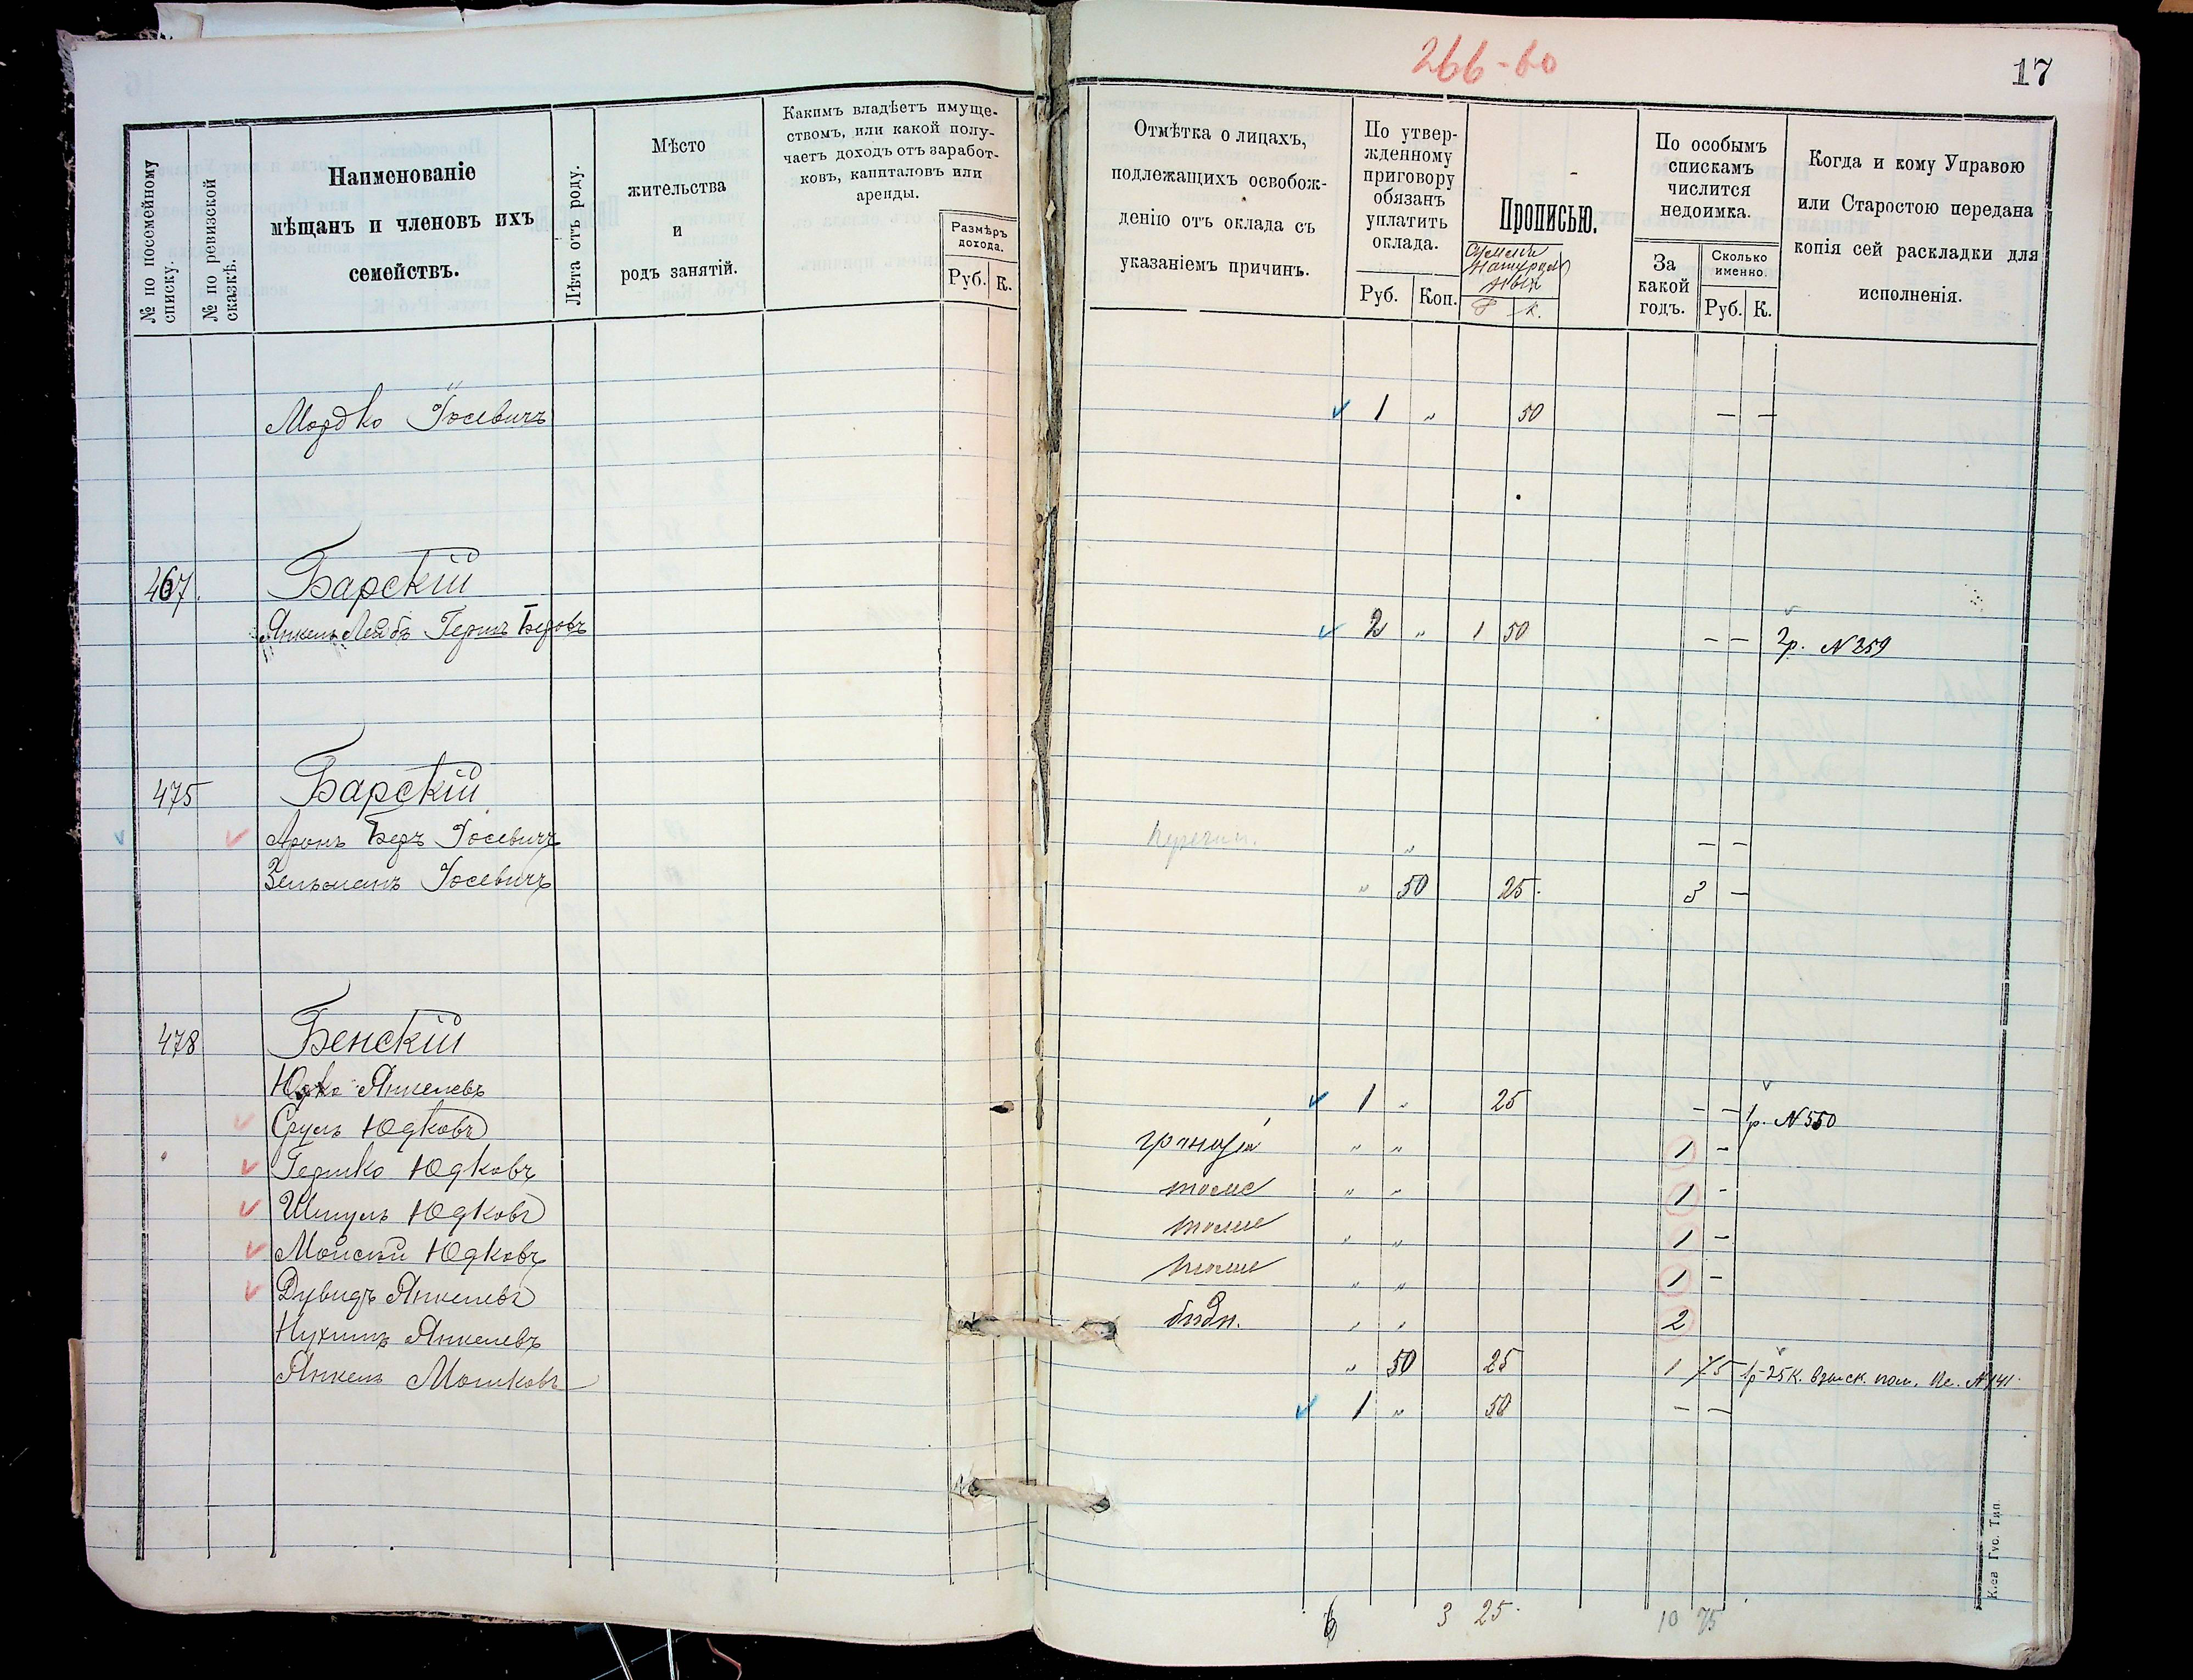 266-60
17
№ по посемейному списку.
№ по ревизской сказкѣ.
Наименованіе
мѣщанъ и членовъ ихъ
семействъ.
Лѣта отъ роду.
Мѣсто
жительства
и
родъ занятій.
Какимъ владѣетъ имуще-
ствомъ, или какой полу-
чаетъ доходъ отъ заработ-
ковъ, капиталовъ или
аренды.
Размѣръ
дохода.
Руб. К.
Отмѣтка о лицахъ,
подлежащихъ освобож-
денію отъ оклада съ
указаніемъ причинъ.
По утвер-
жденному
приговору
обязанъ
уплатить
оклада.
Руб. Коп.
Прописью.
Р К.
По особымъ
спискамъ
числится
недоимка.
За
какой
годъ.
Сколько
именно.
Руб. К.
Когда и кому Управою
или Старостою передана
копія сей раскладки для
исполненія.
Мордко Іосевичъ 1 „ 50 — —
467. Барскій
Янкель Лейбъ Гершъ Беровъ 2 „ 1 50 — — 2р. N 259
475 Барскій
Аронъ Беръ Іосевичъ „ — —
Зельманъ Іосевичъ „ 50 25. 3 —
478 Бенскій
Юдко Янкелевъ 1 „ 25 — — 1р. N 550
Сруль Юдковъ „ „ 1 —
Гершко Юдковъ тоже „ „ 1 —
Шмуль Юдковъ тоже „ „ 1 —
Мойсей Юдковъ тоже „ „ 1 —
Дувидъ Янкелевъ бѣдн. „ „ 2
Нухимъ Янкелевъ „ 50 25 1 75 1р-25к. взыск. пол.
Янкель Мошковъ 1 „ 50 — —
6 3 25. 10 75
Кіев Гус. Тип.